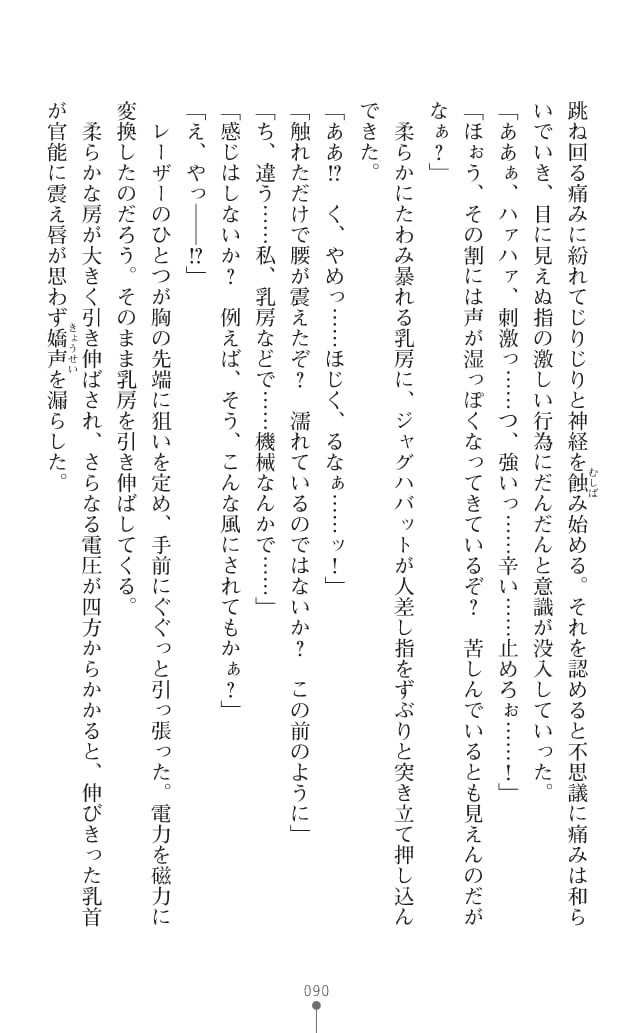 跳ね回る痛みに紛れてじりじりと神経を蝕み始める。それを認めると不思議に痛みは和ら
むしば
いでいき、目に見えぬ指の激しい行為にだんだんと意識が没入していった。
「ああぁ、ハァハァ、刺激っ……つ、強いっ……辛い……止めろぉ……！」
「ほぉう、その割には声が湿っぽくなってきているぞ？　苦しんでいるとも見えんのだが
なぁ？」
柔らかにたわみ暴れる乳房に、ジャグハバットが人差し指をずぶりと突き立て押し込ん
できた。
「ああ!?　く、やめっ……ほじく、るなぁ……ッ！」
「触れただけで腰が震えたぞ？　濡れているのではないか？　この前のように」
「ち、違う……私、乳房などで……機械なんかで……」
「感じはしないか？　例えば、そう、こんな風にされてもかぁ？」
「え、やっ――!?」
レーザーのひとつが胸の先端に狙いを定め、手前にぐぐっと引っ張った。電力を磁力に
変換したのだろう。そのまま乳房を引き伸ばしてくる。
柔らかな房が大きく引き伸ばされ、さらなる電圧が四方からかかると、伸びきった乳首
が官能に震え唇が思わず嬌声を漏らした。
きょうせい
090